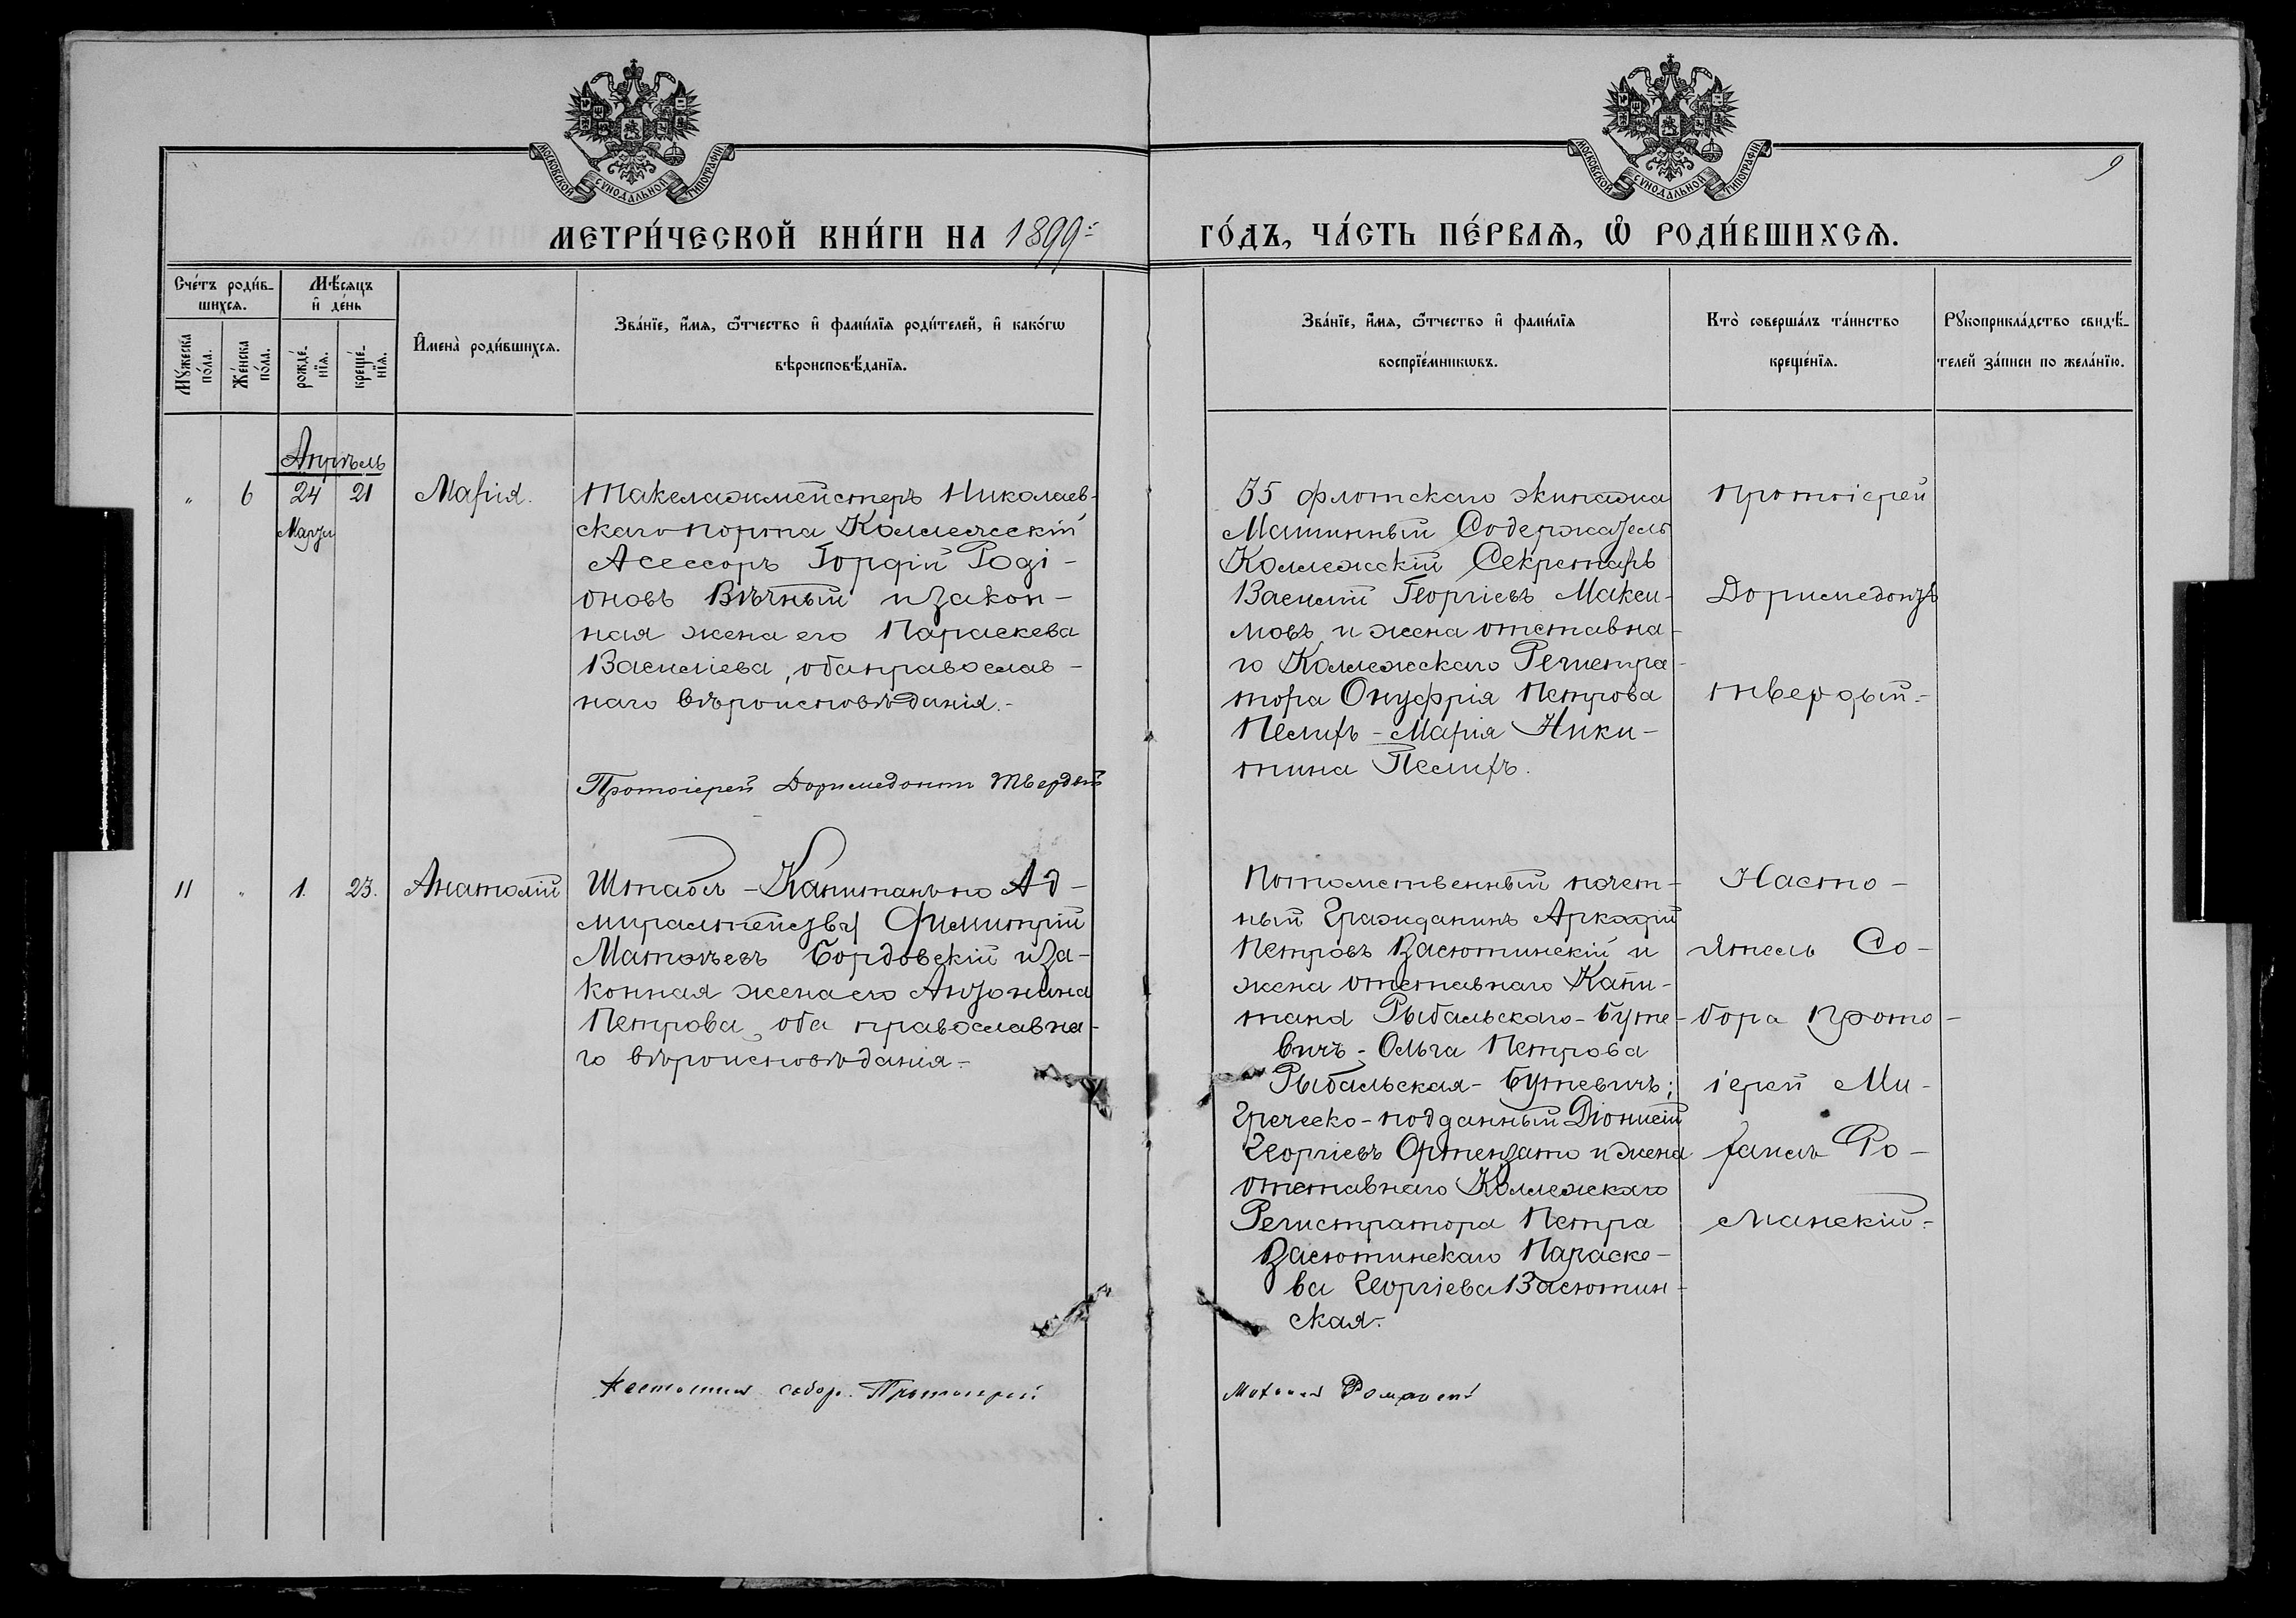 МОСКОВСКОЙ СѴНОДАЛЬНОЙ ТИПОГРАФІИ
МОСКОВСКОЙ СѴНОДАЛЬНОЙ ТИПОГРАФІИ
9
МЕТРИ́ЧЕСКОЙ КНИ́ГИ НА 1899-
ГО́ДЪ, ЧА́СТЬ ПЕ́РВАѦ, Ѡ҆ РОДИ́ВШИХСѦ.
Сче́тъ роди́в-
шихсѧ.
Мꙋ́жеска по́ла.
Же́нска по́ла.
Мѣ́сѧцъ
и҆ де́нь
рожде́-
нїѧ.
креще́-
нїѧ.
И҆мена̀ роди́вшихсѧ.
Зва́нїе, и҆́мѧ, ѻ҆́тчество и҆ фами́лїѧ роди́телей, и҆ како́гѡ
вѣроисповѣ́данїѧ.
Зва́нїе, и҆́мѧ, ѻ҆́тчество и҆ фами́лїѧ
воспрїе́мникѡвъ.
Кто̀ соверша́лъ та́инство
креще́нїѧ.
Рꙋкоприкла́дство свидѣ́-
телей за́писи по жела́нїю.
Апрѣль
" 6 24 21 Марія.
Марта
Такелажмейстеръ Николаев-
скаго порта Коллежскій
Асессоръ Гордій Родi-
оновъ Вѣчный и закон-
ная жена его Параскева
Василіева, оба православ-
наго вѣроисповѣданія.-
Протоіерей Доримедонтъ Твердый
35 флотскаго экипажа
Машинный Содержатель
Коллежскій Секретарь
Василій Георгіевъ Макси-
мовъ и жена отставна-
го Коллежскаго Регистра-
тора Онуфрія Петрова
Пелихъ - Марія Ники-
тина Пелихъ.
Протоіерей
Доримедонтъ
Твердый.-
11 " 1. 23. Анатолій
Штабсъ-Капитанъ по Ад-
миралтейству Димитрій
Матвѣевъ Бордовскій и за-
конная жена его Антонина
Петрова, оба православна-
го вѣроисповѣданія.-
Потомственный почет-
ный Гражданинъ Аркадій
Петровъ Васютинскій и
жена отставнаго Капи-
тана Рыбальскаго-Буте-
вичъ - Ольга Петрова
Рыбальская-Бутевичъ;
Греческо-подданный Діонисій
Георгіевъ Ортензато и жена
отставнаго Коллежскаго
Регистратора Петра
Васютинскаго Параске-
ва Георгіева Васютин-
ская.-
Насто-
ятель Со-
бора Прото-
іерей Ми-
хаилъ Ро-
манскій.-
Настоятель собора Протоіерей
Михаилъ Романскій